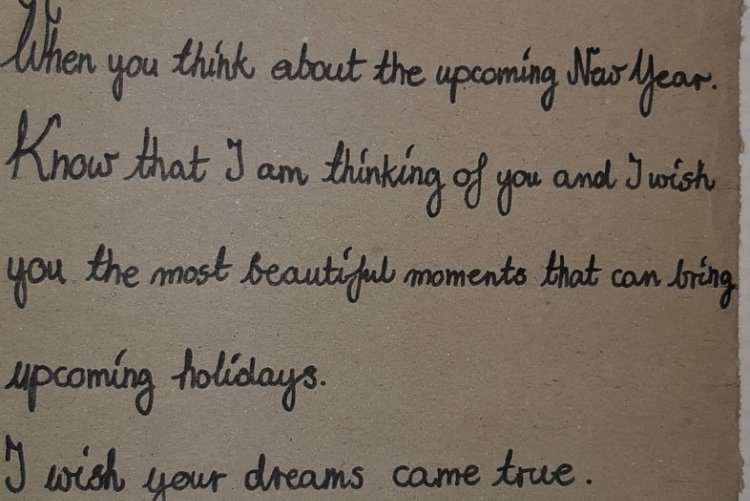 When you think about the upcoming New Year.
Know that I am thinking of you and I wish
you the most beautiful moments that can bring
upcoming holidays.
I wish your dreams came true.